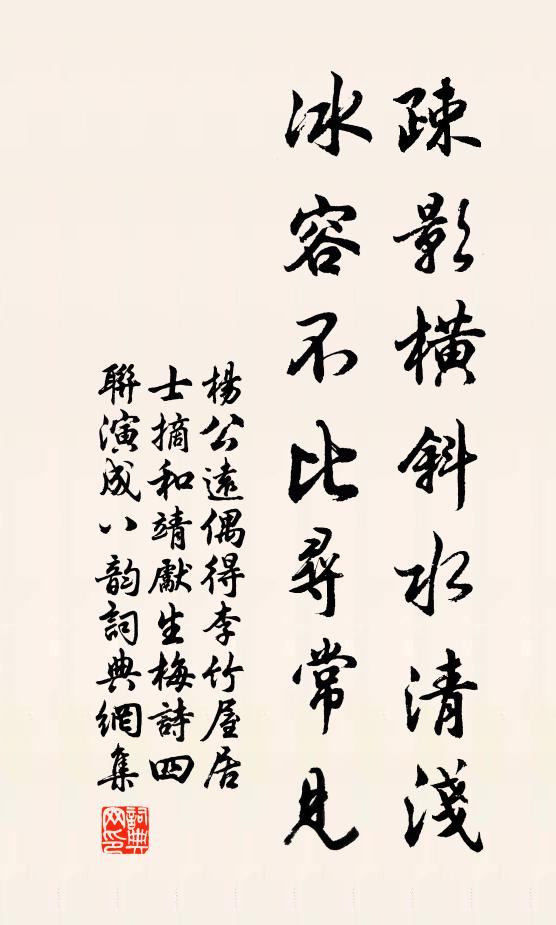 疎影橫斜水清淺
冰容不比尋常見
楊公遠偶得李竹屋居
士摘和靖獻生梅詩四
聯演成八韵詞典網集
詞典网印